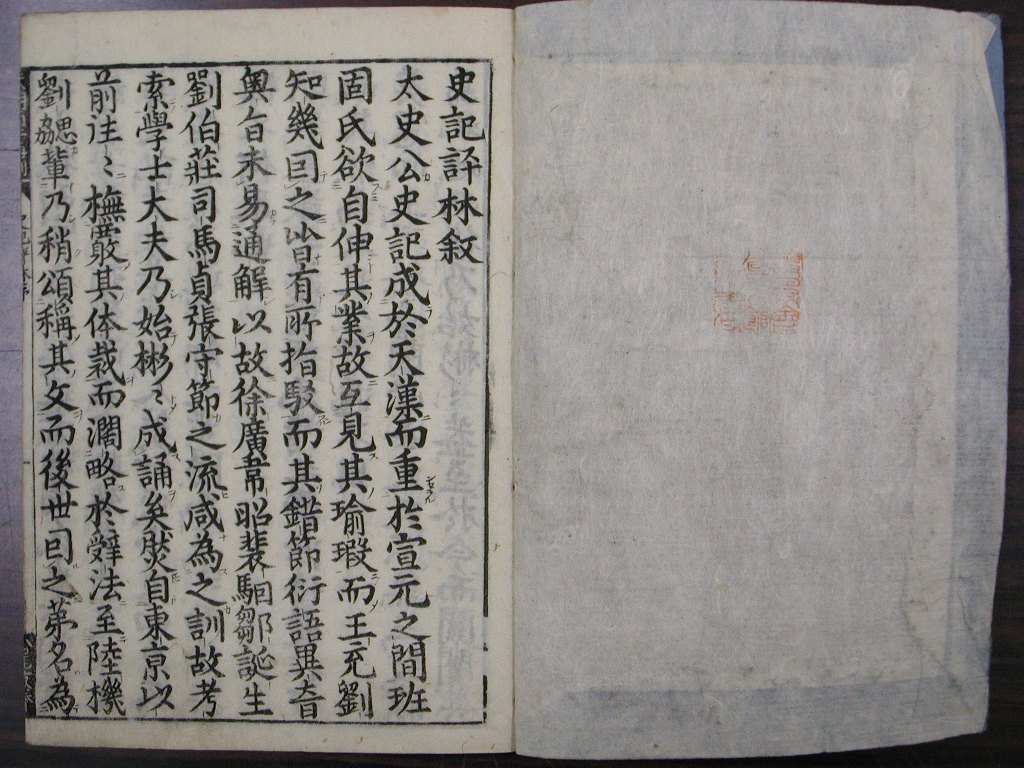 史記評林叙
太史公史記成於天漢而重於宣元之間班
固氏欲自伸其業故互見其瑜瑕而王充劉
知幾因之皆有所指駁而其錯節衍語異音
奧旨未易通解以故徐廣韋昭裴駰鄒誕生
劉伯莊司馬貞張守節之流咸為之訓故考
索學士大夫乃始彬〻成誦矣然自東京以
前注〻橅覈其体裁而濶略於辭法至陸機
劉勰輩乃稍頌稱其文而後世因之第名為